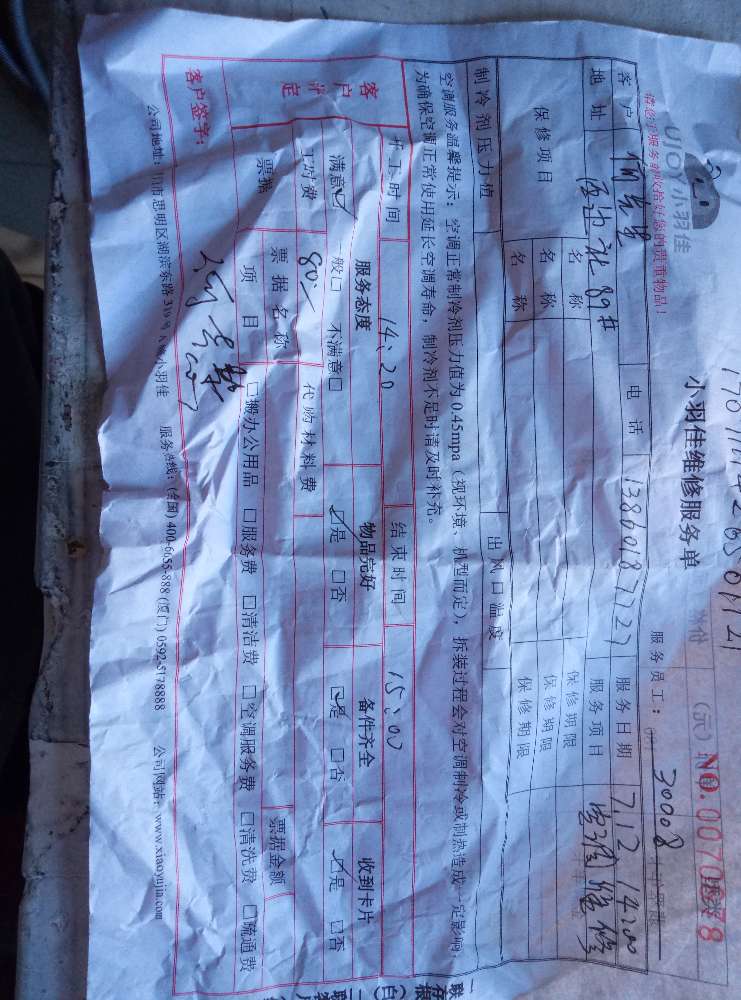 小羽佳
请您在服务前收拾好您的贵重物品!
小羽佳维修服务单
NO.
服务员工: 30008
客户 电话 服务日期 7.12 14:00
地址 89# 服务项目 空调维修
保修项目 名称 保修期限
名称 保修期限
名称 保修期限
制冷剂压力值 出风口温度
空调服务温馨提示:空调正常制冷剂压力值为0.45mpa(视环境、机型而定),拆装过程会对空调制冷或制热造成一定影响,
为确保空调正常使用延长空调寿命,制冷剂不足时请及时补充。
开工时间 14:20 结束时间 15:00
客户评定
服务态度 物品完好 备件齐全 收到卡片
满意☑ 一般□ 不满意□ ☑是 □否 ☑是 □否 ☑是 □否
工时费 80 代购材料费
票据 票据名称 票据金额
项目 □搬办公用品 □服务费 □清洁费 □空调服务费 □清洗费 □疏通费
客户签字:
公司地址: 思明区湖滨东路319号 小羽佳 服务热线:(全国) 400-6656-888 (厦门) 0592-5178888 公司网站: www.xiaoyujia.com